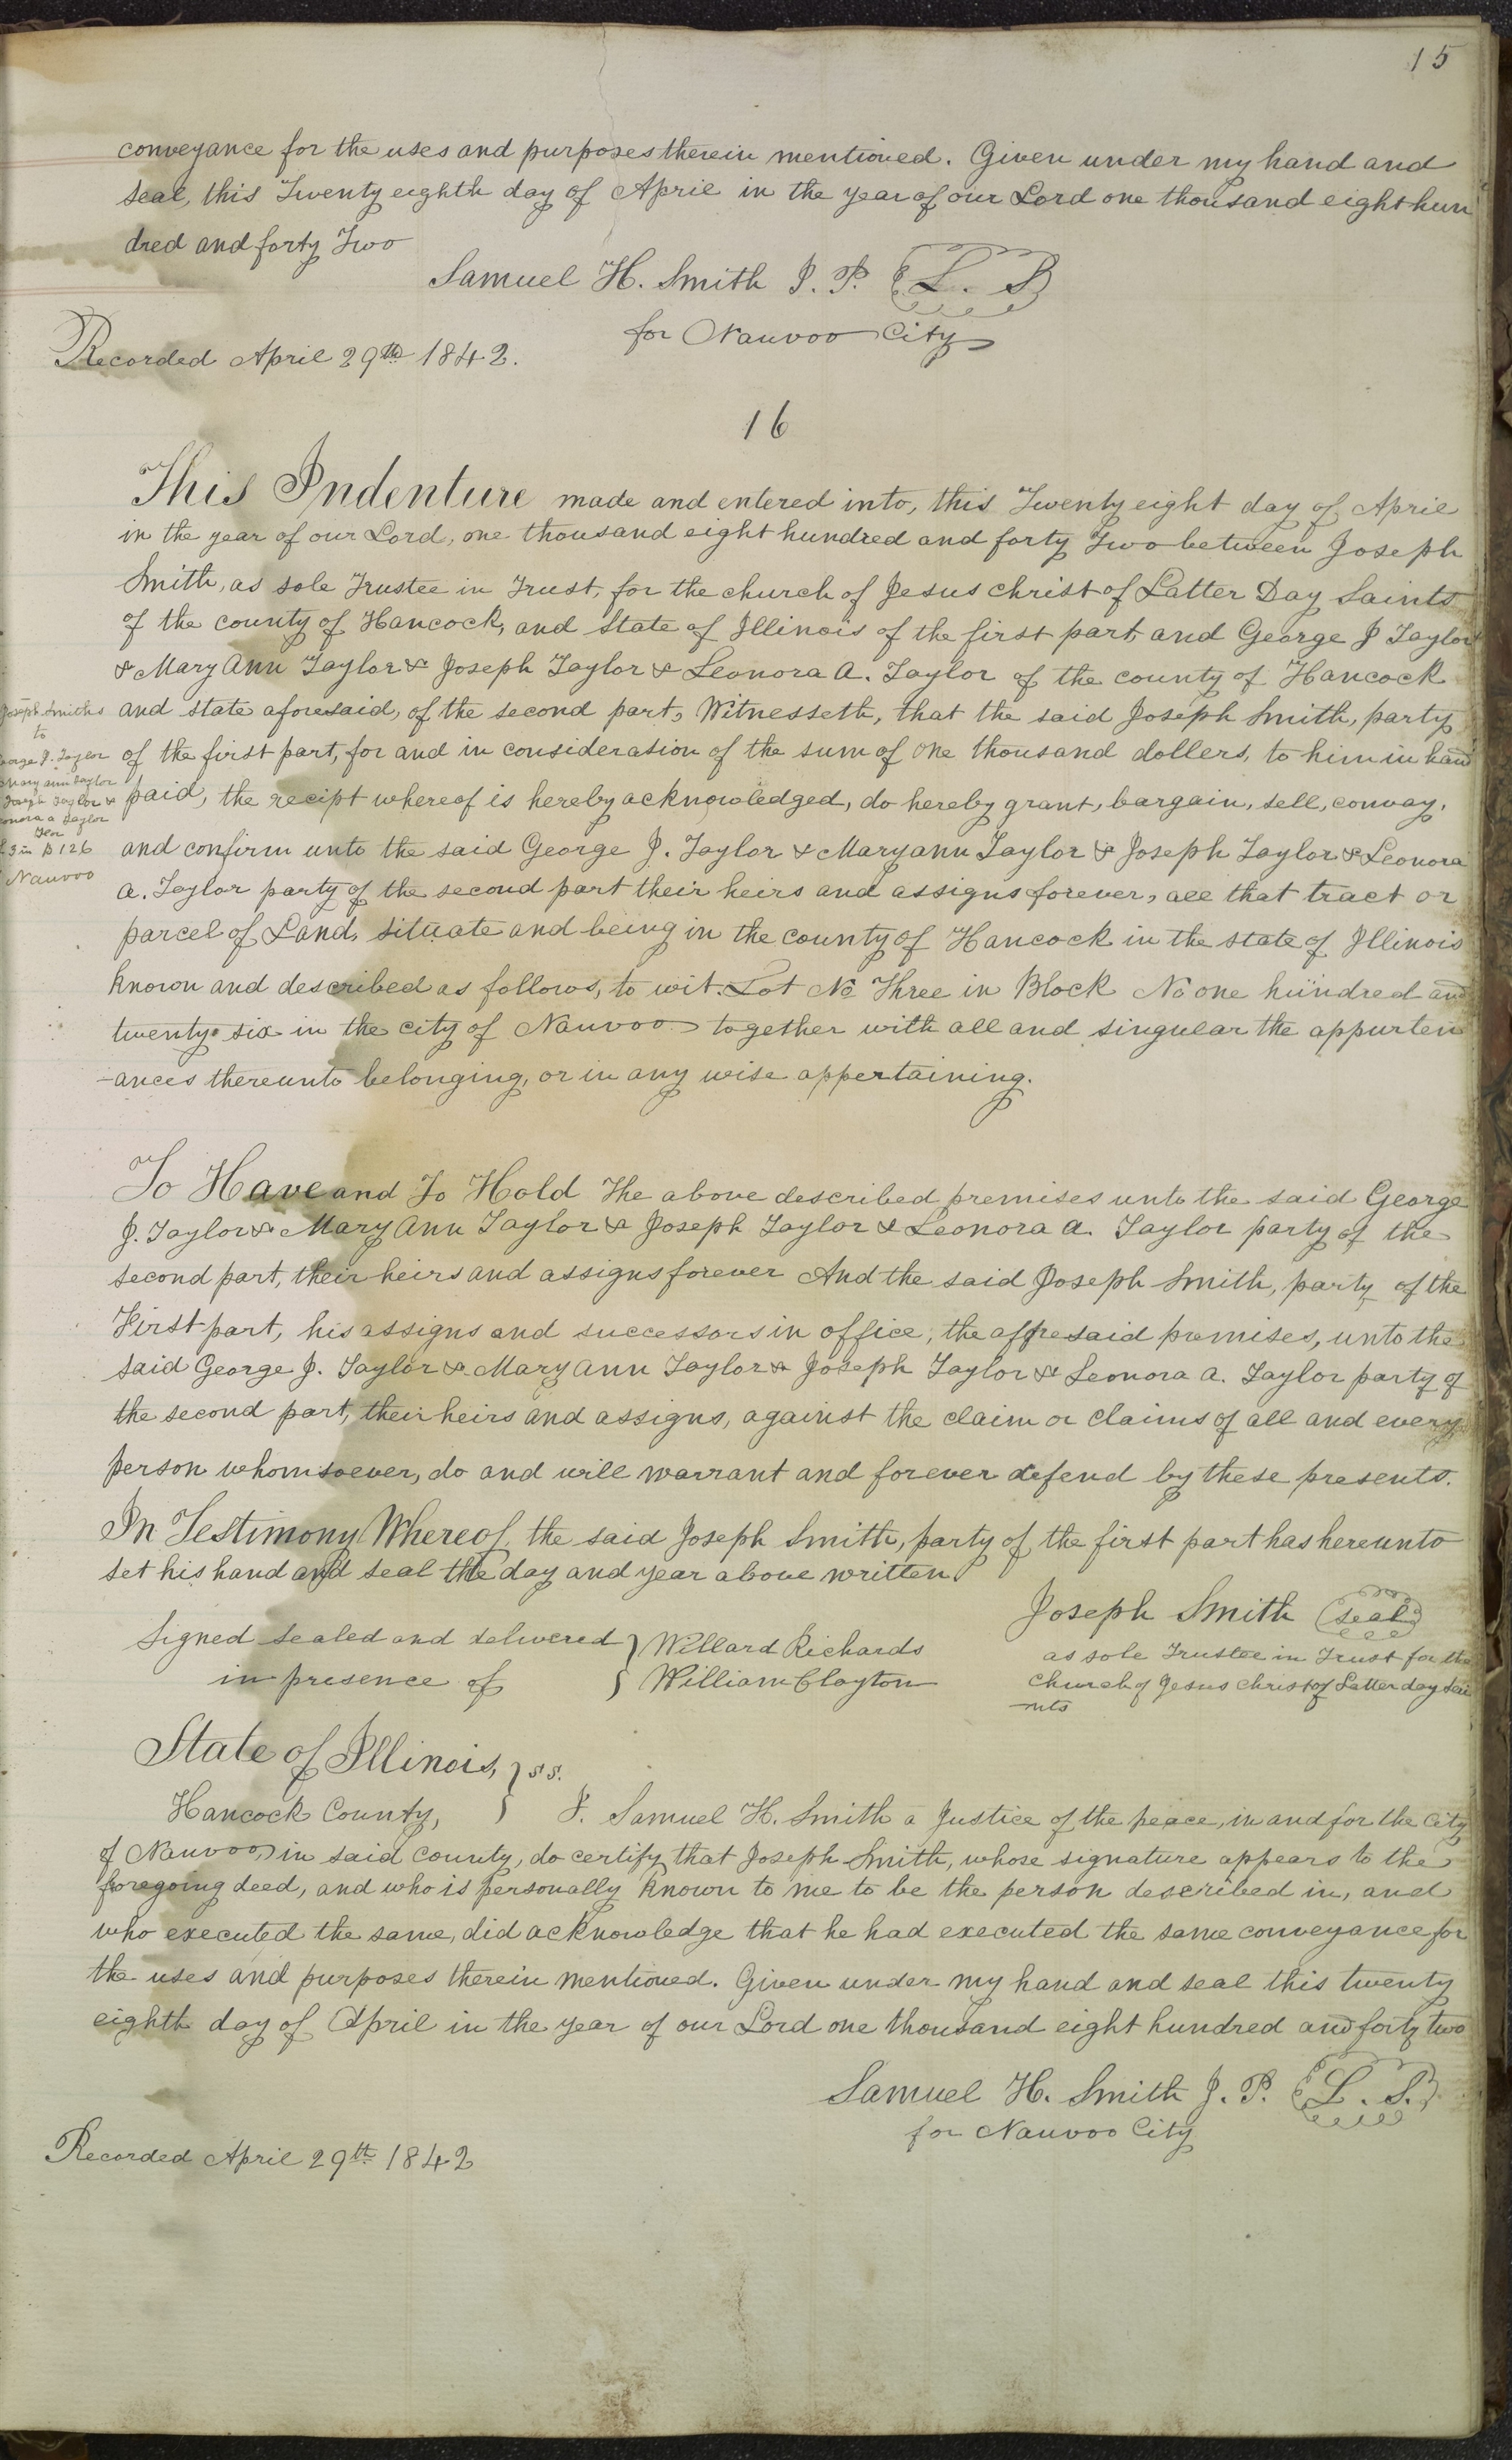 15
conveyance for the uses and purposes therein mentioned. Given under my hand and
seal, this Twenty eighth day of April in the year of our Lord one thousand eight hun
dred and forty Two
Samuel H. Smith J. P. L. S
for Nauvoo City
Recorded April 29th 1842.
16
This Indenture made and entered into, this Twenty eight day of April
in the year of our Lord, one thousand eight hundred and forty Two between Joseph
Smith, as sole Trustee in Trust, for the church of Jesus christ of Latter Day Saints
of the county of Hancock, and State of Illinois of the first part, and George J Taylor
& Mary Ann Taylor & Joseph Taylor & Leonora A. Taylor of the county of Hancock
and state aforesaid, of the second part, Witnesseth, that the said Joseph Smith, party
of the first part, for and in consideration of the sum of one thousand dollers, to him in hand
paid, the recipt whereof is hereby acknowledged, do hereby grant, bargain, sell, convay,
and confirm unto the said George J. Taylor & Maryann Taylor & Joseph Taylor & Leonora
A. Taylor party of the second part their heirs and assigns forever, all that tract or
parcel of Land, situate and being in the county of Hancock in the state of Illinois
known and described as follows, to wit. Lot No Three in Block No one hundred and
twenty six in the city of Nauvoo together with all and singular the appurten
-ances thereunto belonging, or in any wise appertaining.
Joseph Smiths
to
George J. Taylor
Mary ann Taylor
Joseph Taylor &
Leonora a Taylor
L 3 in B 126
Nauvoo
To Have and To Hold The above described premises unto the said George
J. Taylor & Mary Ann Taylor & Joseph Taylor & Leonora A. Taylor party of the
second part, their heirs and assigns forever And the said Joseph Smith, party of the
First part, his assigns and successors in office, the afforesaid premises, unto the
said George J. Taylor & Mary Ann Taylor & Joseph Taylor & Leonora A. Taylor party of
the second part, their heirs and assigns, against the claim or claims of all and every
person whomsoever, do and will warrant and forever defend by these presents.
In Testimony Whereof, the said Joseph Smith, party of the first part has hereunto
set his hand and seal the day and year above written
Joseph Smith seal
as sole Trustee in Trust for the
church of Jesus christ of Latter day Sai
-nts
Signed sealed and delivered } Willard Richards
in presence of } William Clayton
State of Illinois, } s s.
Hancock County, } I. Samuel H. Smith a Justice of the peace, in and for the city
of Nauvoo, in said county, do certify that Joseph Smith, whose signature appears to the
foregoing deed, and who is personally known to me to be the person described in, and
who executed the same, did acknowledge that he had executed the same conveyance for
the uses and purposes therein mentioned. Given under my hand and seal this twenty
eighth day of April in the year of our Lord one thousand eight hundred and forty two
Samuel H. Smith J. P. L. S.
for Nauvoo City
Recorded April 29th 1842